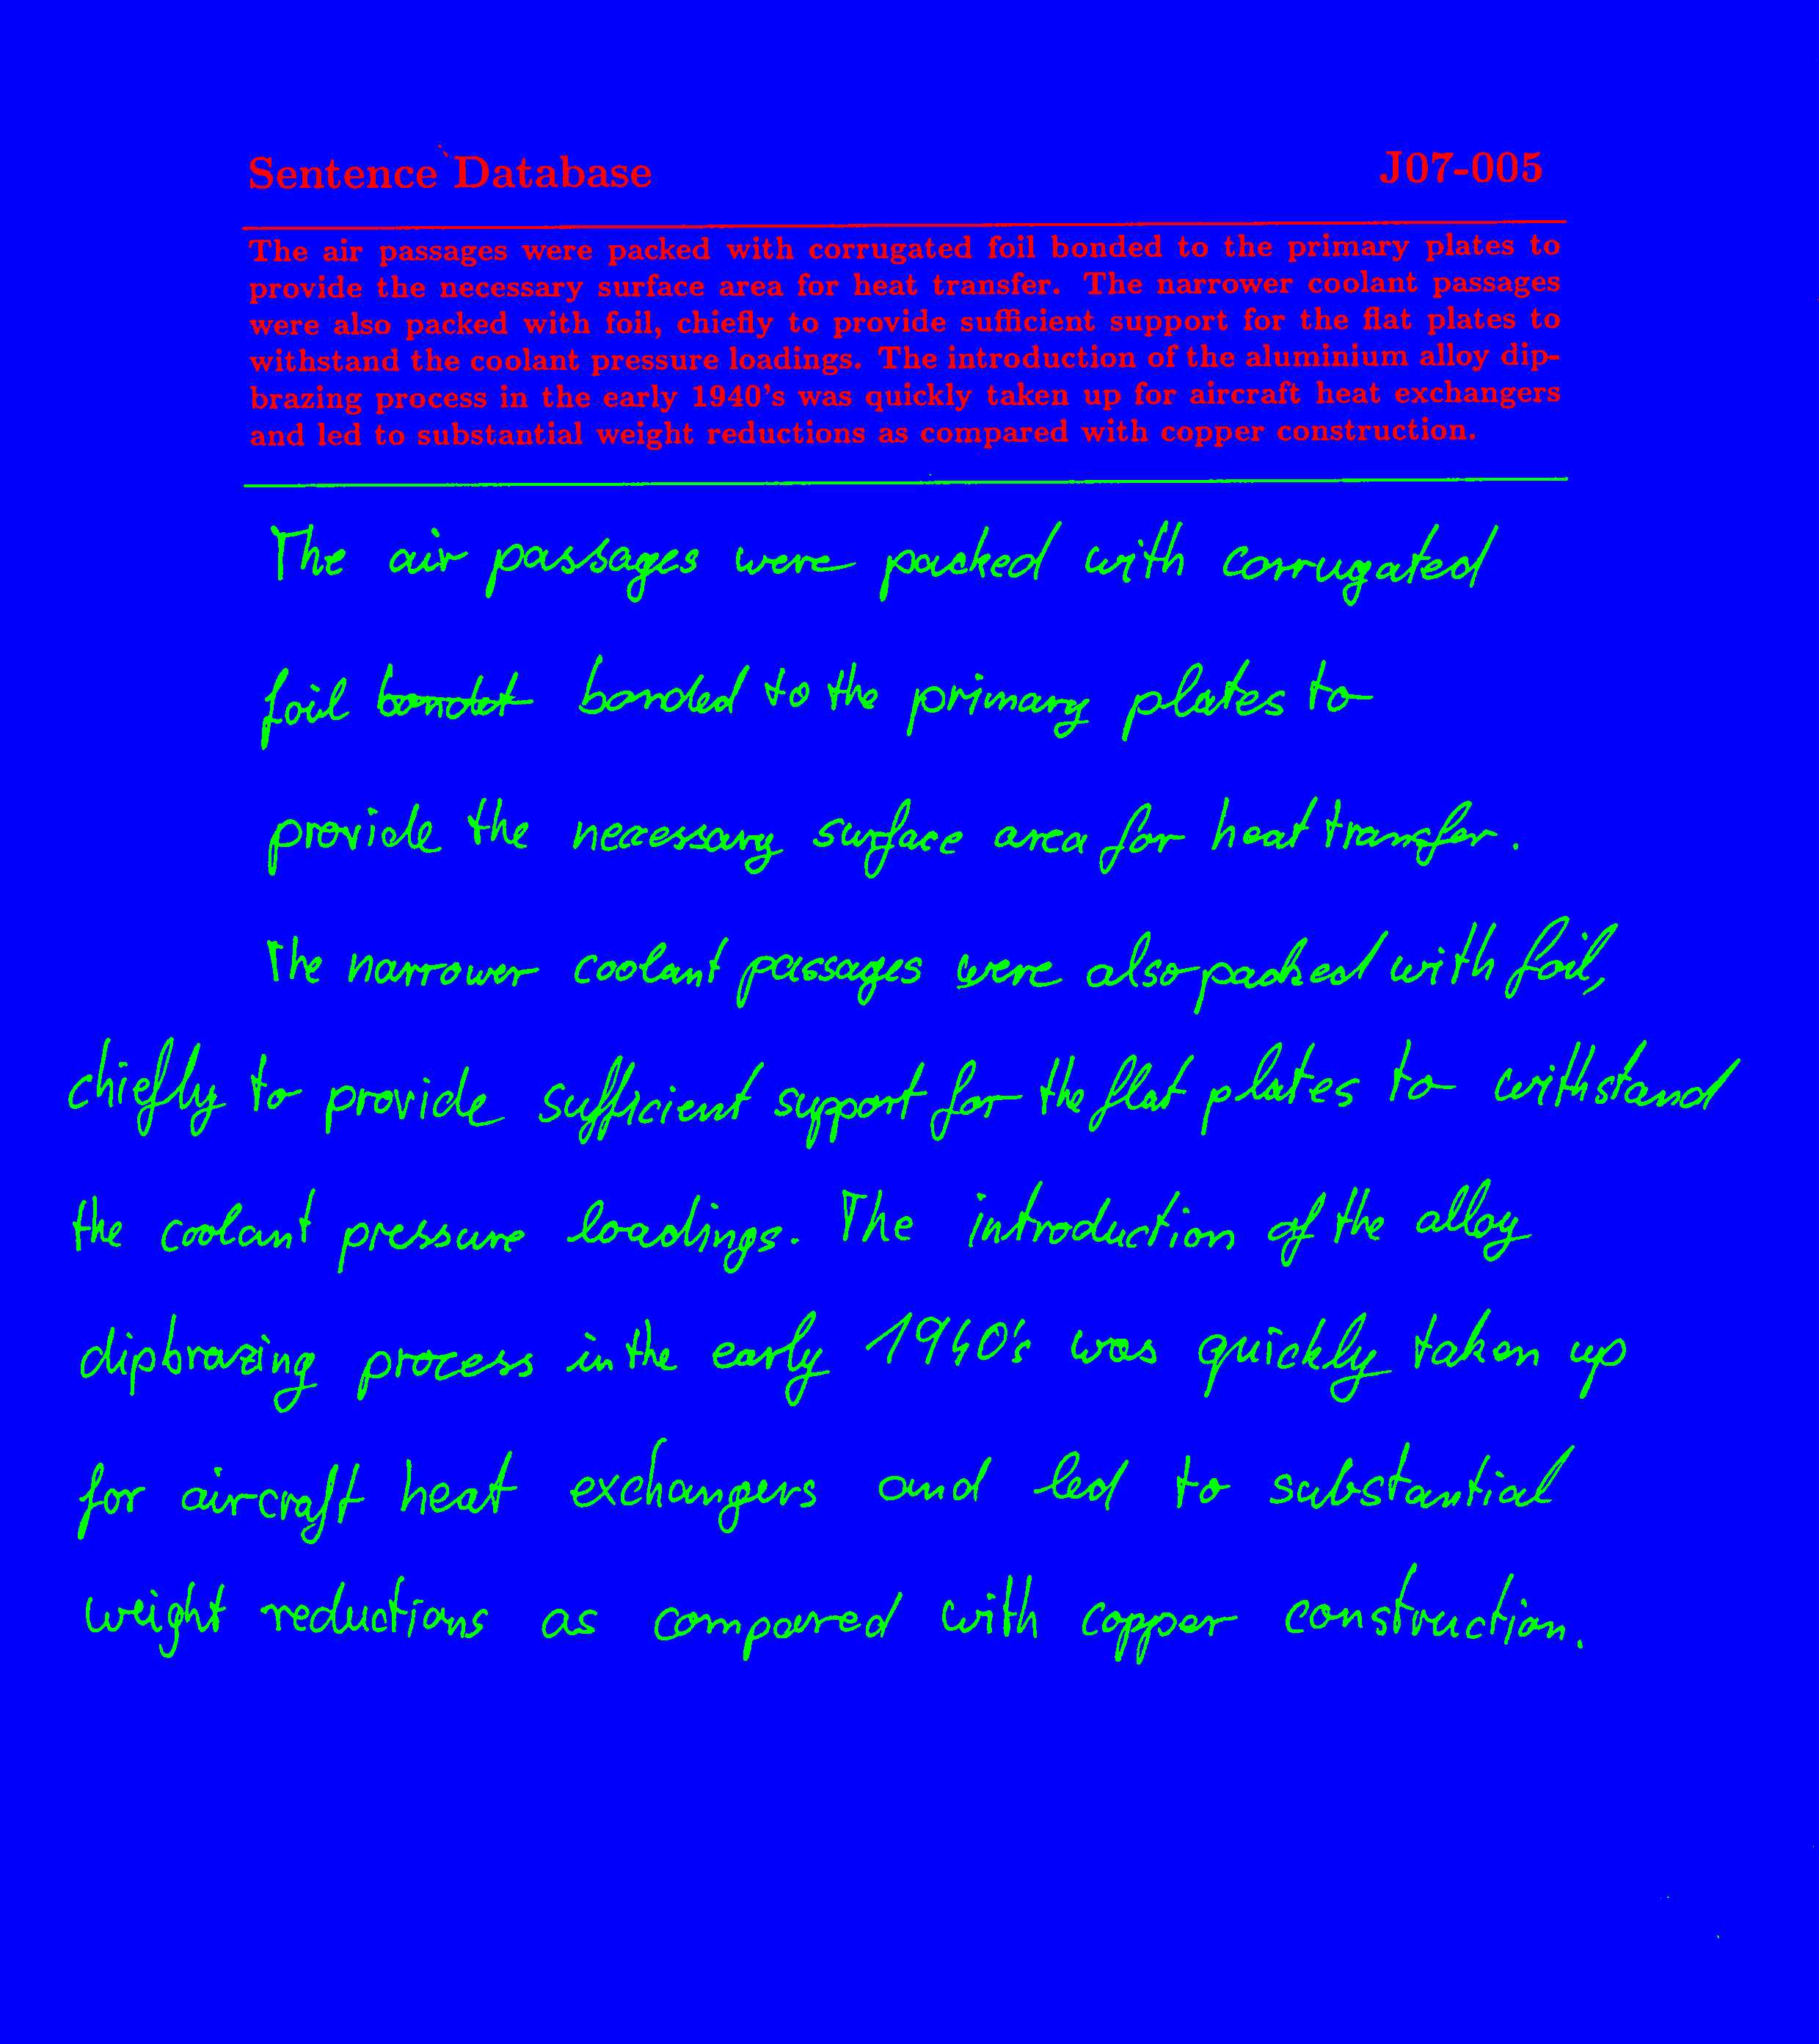 Sentence Database J07-005
The air passages were packed with corrugated foil bonded to the primary plates to
provide the necessary surface area for heat transfer. The narrower coolant passages
were also packed with foil, chiefly to provide sufficient support for the flat plates to
withstand the coolant pressure loadings. The introduction of the aluminium alloy dip-
brazing process in the early 1940's was quickly taken up for aircraft heat exchangers
and led to substantial weight reductions as compared with copper construction.
The air passages were packed with corrugated
foil bonded to the primary plates to
provide the necessary surface area for heat transfer.
The narrower coolant passages were also packed with foil,
chiefly to provide sufficient support for the flat plates to withstand
the coolant pressure loadings. The introduction of the alloy
dipbrazing process in the early 1940's was quickly taken up
for aircraft heat exchangers and led to substantial
weight reductions as compared with copper construction.